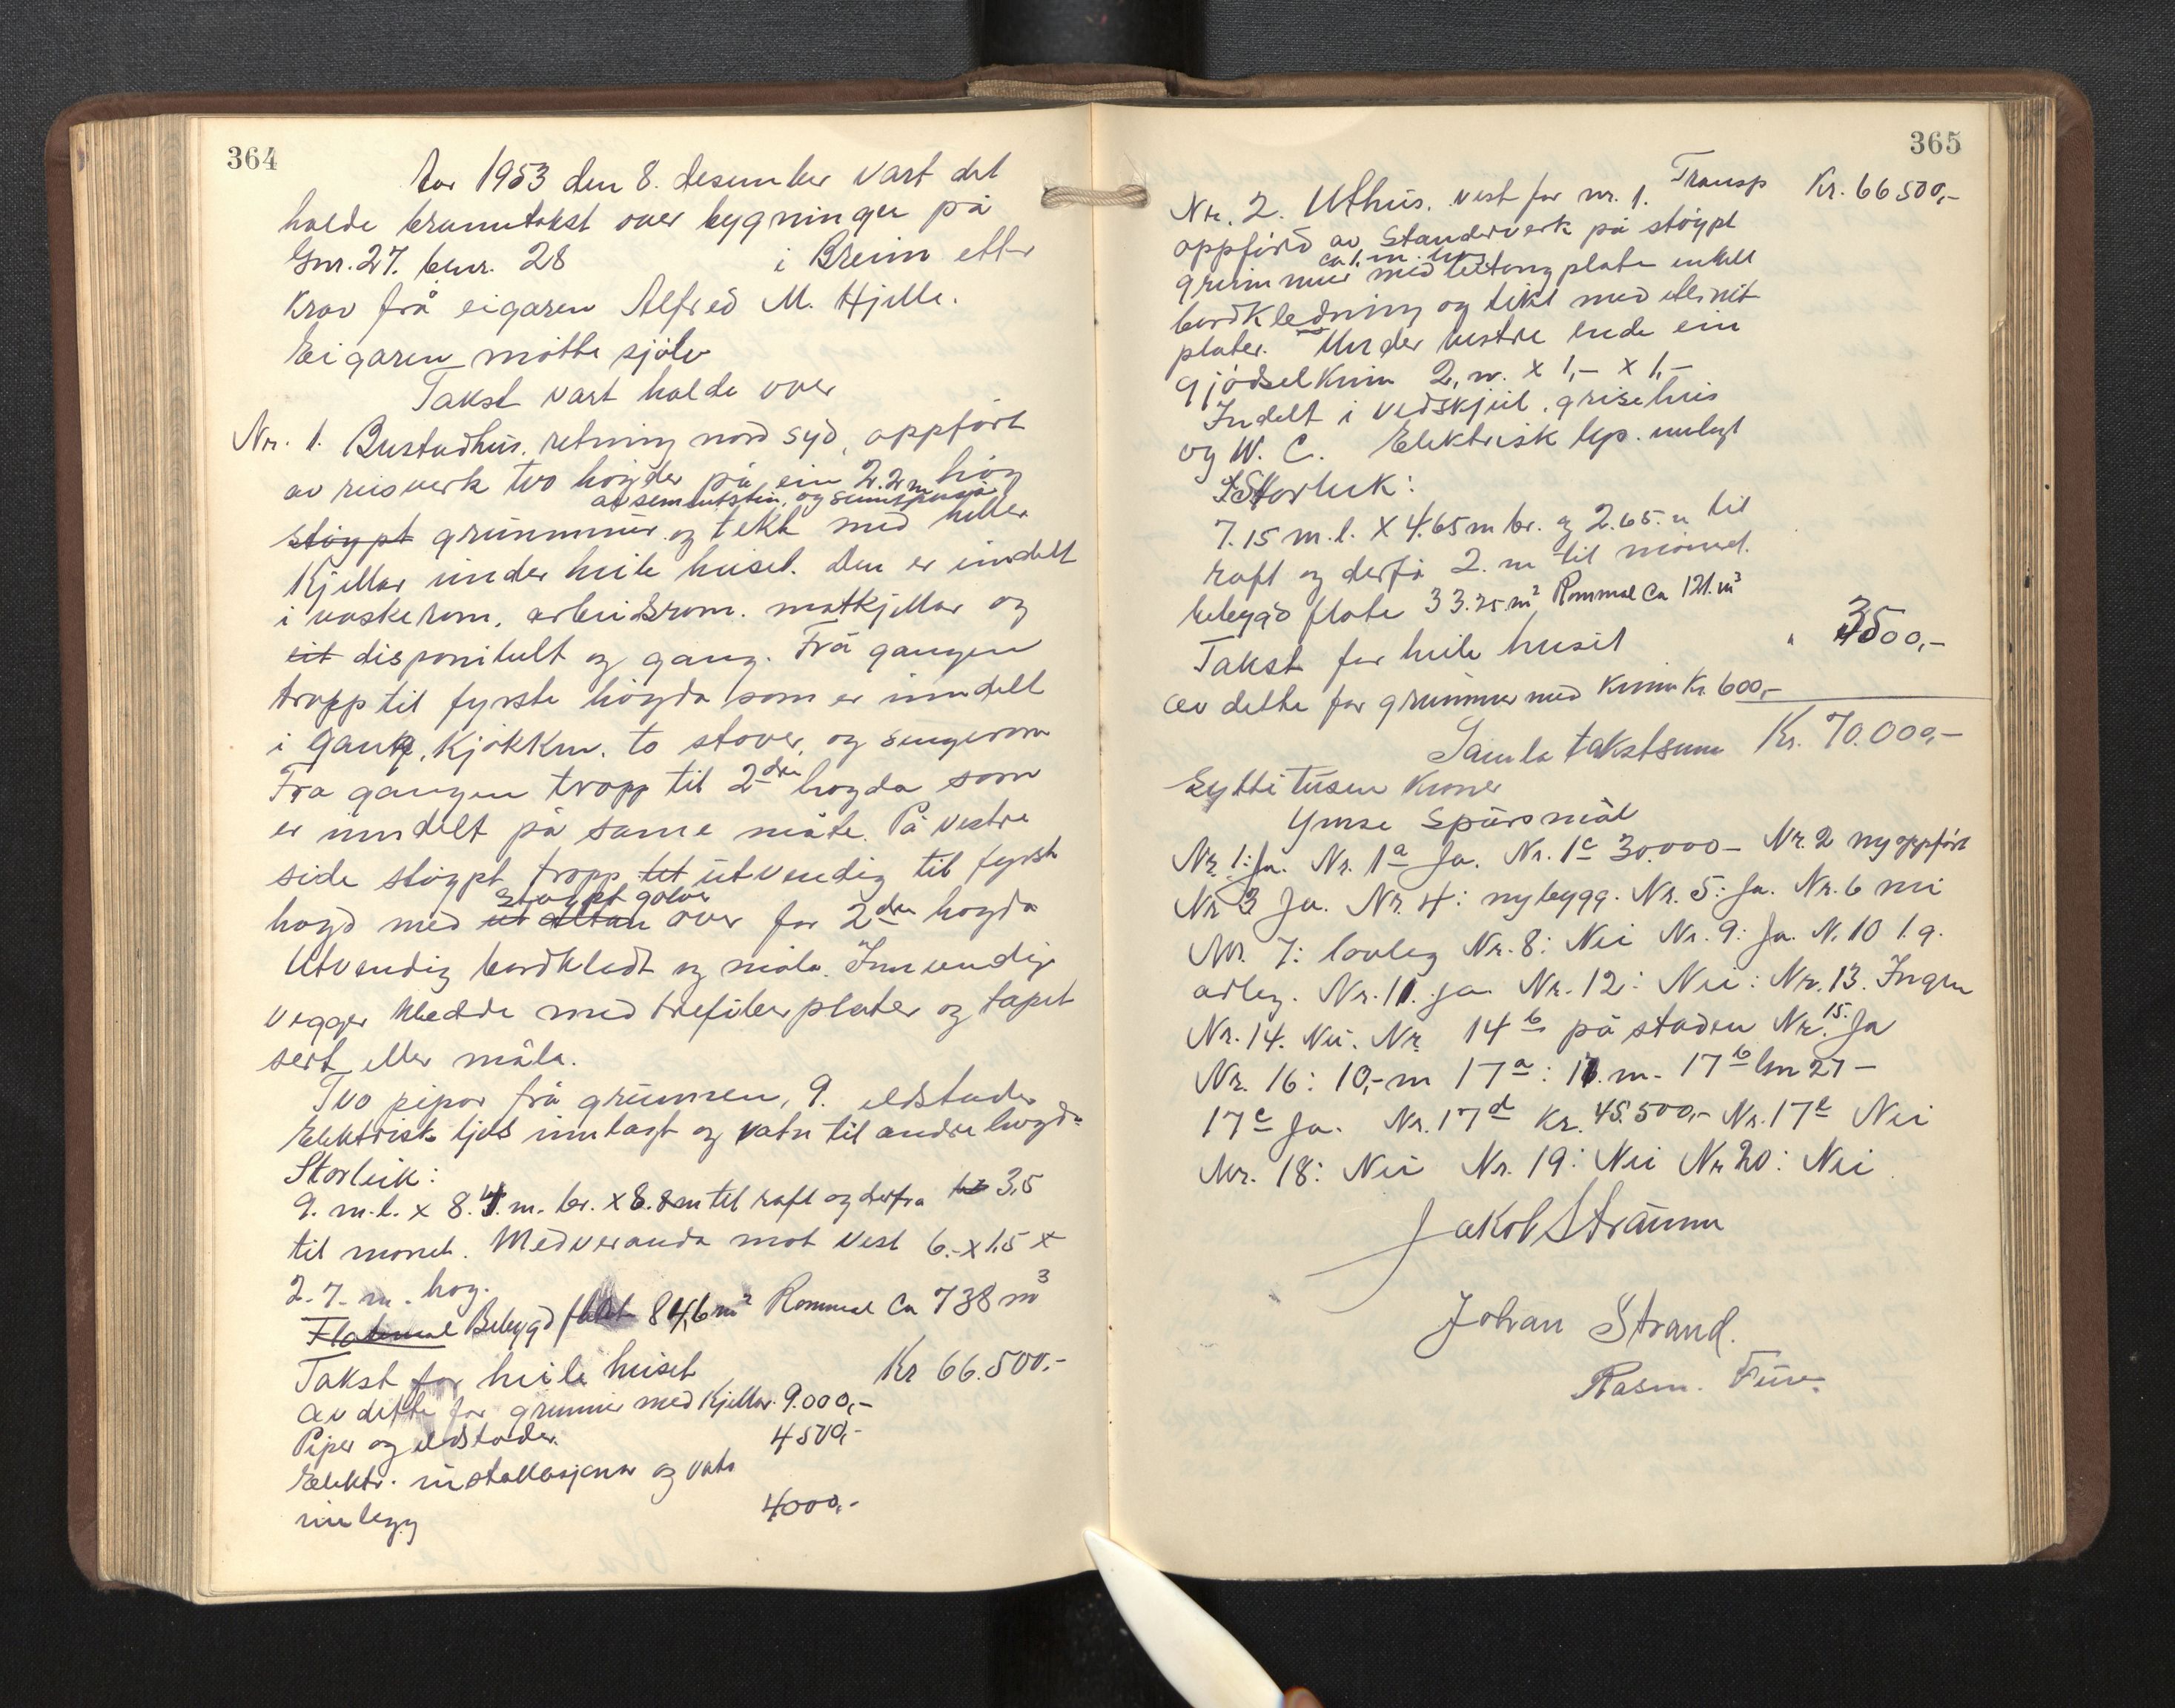 364
Aar 1953 den 8. desember vart det
halde branntakst over bygningar på
Gnr. 27. bnr. 28 i Breim etter
Krav frå eigaren Alfred M. Hjelle.
Eigaren møtte sjølv
Takst vart halde over
Nr. 1. Bustadhus. retning nord syd, oppført
av reisverk two høgder på ein 2.2 m høg
av sementstein, og
støypt grunnmur og tekt med heller
Kjellar under heile huset. Den er inndelt
i vaskerom, arbeidsrom. matkjellar og
eit disponibelt og gang. Frå gangen
tropp til fyrste høgda som er inndelt
i gang, Kjøkken. to stover, og sengerom
Fra gangen tropp til 2dre høgda som
er inndelt på same måte. På vestre
side støypt tropp til utvendig til fyrste
støypt golv
høgd med ut altan over for 2dre høgda
Utvendig bordkledt og måla. Innvendige
vegger kledde med trefiberplater og tapet
sert eller måla.
Two pipor frå grunnen, 9. eldstader
Elektrisk ljos innlagt og vatn til andre høgda
Storleik:
9. m.l. x 8.4. m. br. x 8.8m til raft og derfra til 3,5
til mønet. Med veranda mot vest 6.- x 1.5 x
2.7. m. høg.
Flatemål Bebygd flate 84,6 m² Rommål Ca 738 m³
Takst for heile huset Kr 66.500.-
av dette for grunmur med Kjellar. 9.000,-
Piper og eldstader. 4500,-
Elektr. installasjonar og vatn
innlegg 4000,-
365
Transp Kr. 66500,-
Nr. 2. Uthus. vest for nr. 1.
oppførd av Standerverk på støypt
ca 1. m. høg
grunnmur med plate enkelt
bordkledning og tekt med eternit
plater. Under vestre ende ein
gjødselkum 2, m. x 1,- x 1,-
Indelt i vedskjul, grisehus
og W. C. Elektrisk lys. innlagt
Storleik:
7.15 m.l. x 4.65 m br. og 2.65. m til
raft og derfå 2. m til møned.
bebygd flate 33.25 m² Rommål Ca 121. m³
Takst for heile huset " 3500,-
av dette for grunmur med Kum Kr. 600,-
Samla takstsum Kr. 70.000,-
Sytti tusen Kroner
Ymse Spørsmål
Nr 1: Ja. Nr. 1a Ja. Nr. 1c 30.000- Nr. 2 nyoppført
Nr 3 Ja. Nr. 4: nybygg. Nr. 5: Ja. Nr. 6 nei
Nr. 7: lovleg Nr. 8: Nei Nr. 9: Ja. N. 10 1. g.
årleg. Nr. 11. ja. Nr. 12: Nei: Nr. 13. Ingen
Nr. 14. Nei. Nr 14b på staden Nr. 15. Ja
Nr. 16: 10,- m 17a: m. 17b 27 -
17c Ja. Nr. 17d Kr. 45.500,- Nr. 17e Nei
Nr. 18: Nei Nr. 19: Nei Nr 20: Nei
Jakob Straume
Johan Strand.
Rasm.